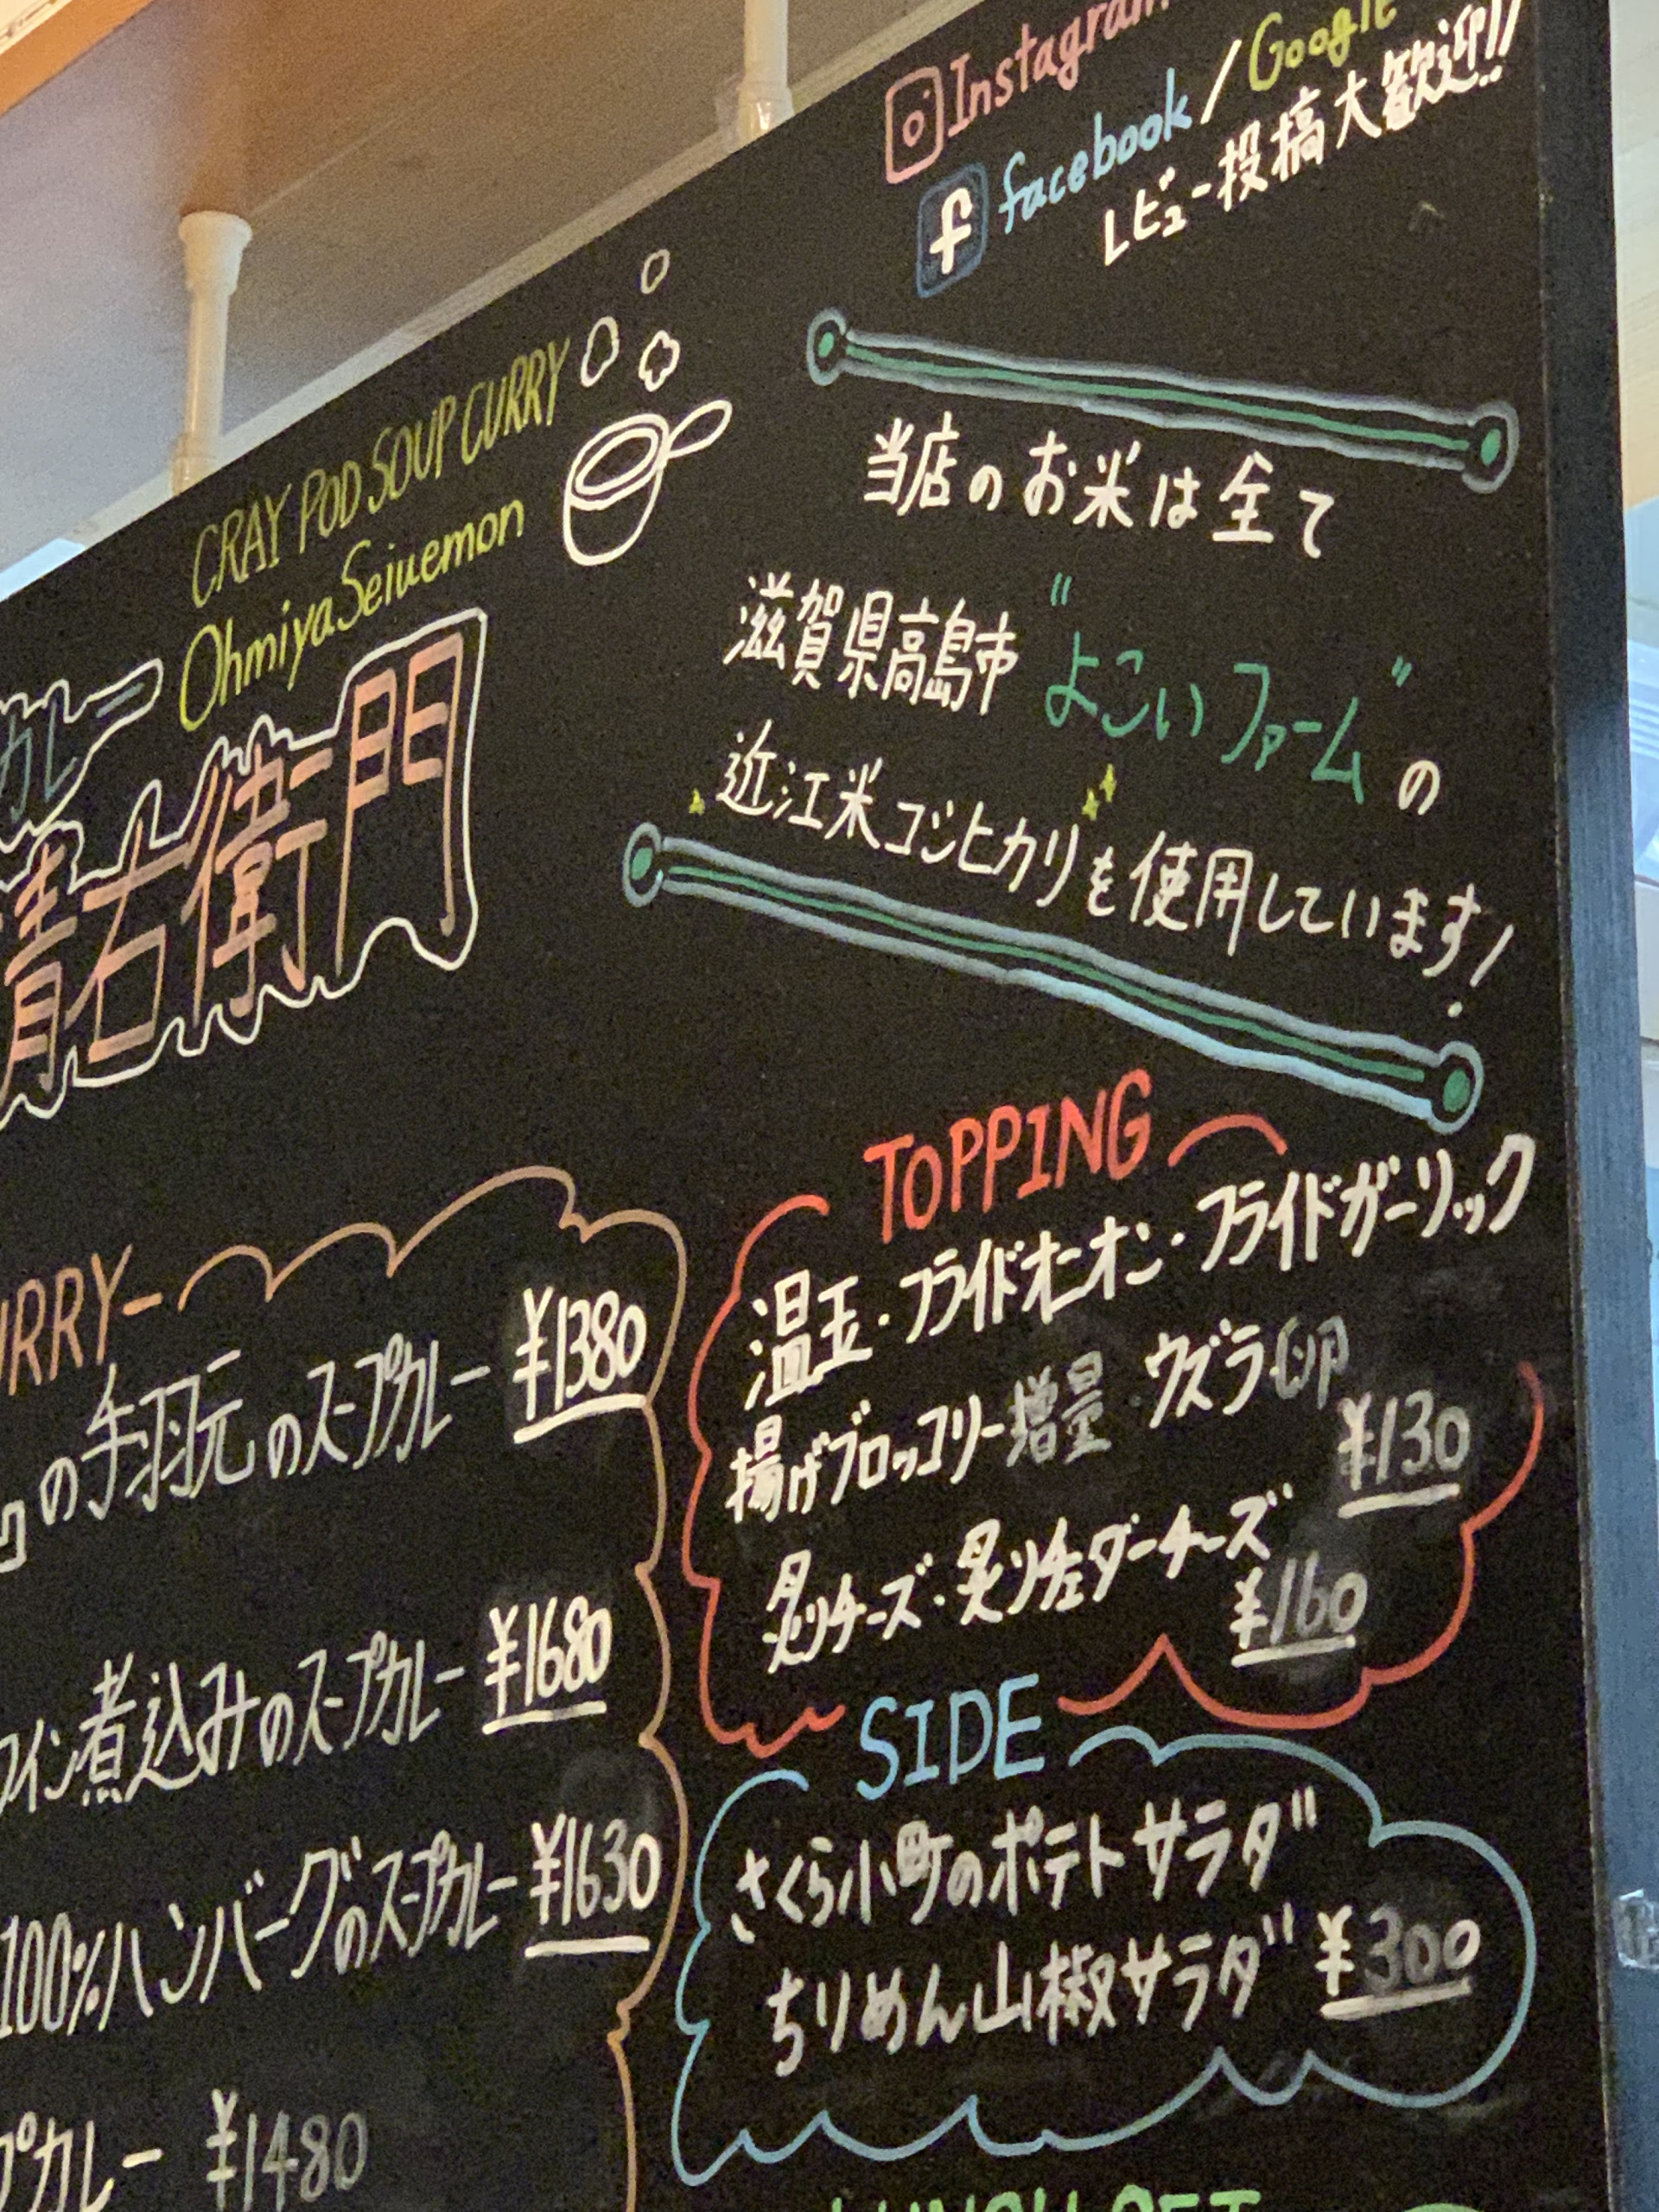 Instagram
facebook / Google
レビュー投稿大歓迎!!
CRAY POD SOUP CURRY
Ohmiya Seiuemon
カレー
清右衛門
当店のお米は全て
滋賀県高島市 "よこいファーム" の
近江米コシヒカリを使用しています!
URRY-
の手羽元のスープカレー ¥1380
ワイン煮込みのスープカレー ¥1680
100%ハンバーグのスープカレー ¥1630
プカレー ¥1480
TOPPING
温玉・フライドオニオン・フライドガーリック
揚げブロッコリー増量・ウズラ卵
¥130
炙りチーズ・炙りチェダーチーズ
¥160
SIDE
さくら小町のポテトサラダ
ちりめん山椒サラダ ¥300
LUNCH SET